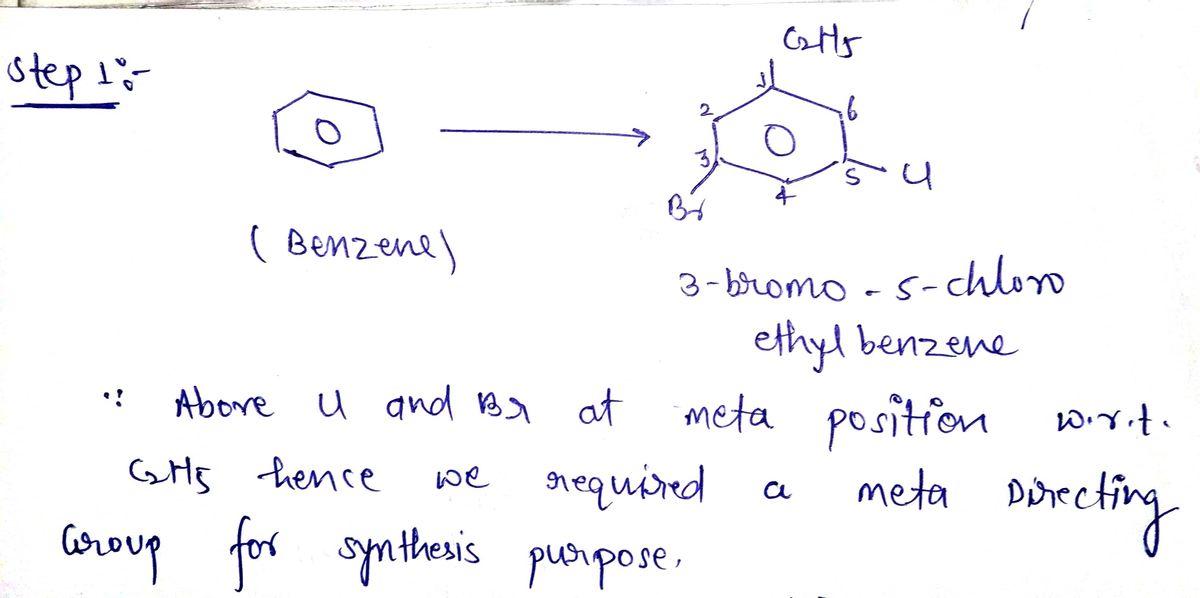 Step 1:-
C2H5
1
2
6
3
5
Cl
4
Br
(Benzene)
3-bromo-5-chloro
ethyl benzene
∵ Above Cl and Br at meta position w.r.t.
C2H5 hence we required a meta Directing
Group for synthesis purpose.